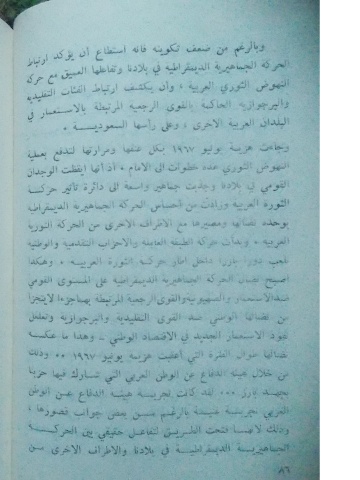 وبالرغم من ضعف تكوينه فانه استطاع أن يؤكد ارتباط
الحركة الجماهيرية الديمقراطية في بلادنا وتفاعلها العميق مع حركة
النهوض الثوري العربية ، وأن يكشف ارتباط الفئات التقليدية
والبرجوازية الحاكمة بالقوى الرجعية المرتبطة بالاستعمار في
البلدان العربية الاخرى ، وعلى رأسها السعودية .
وجاءت هزيمة يونيو ١٩٦٧ بكل عنفها ومرارتها لتدفع بعملية
النهوض الثوري عدة خطوات الى الامام ، اذ أنها ايقظت الوجدان
القومي في بلادنا وجذبت جماهير واسعة الى دائرة تأثير حركة
الثورة العربية وزادت من احساس الحركة الجماهيرية الديمقراطية
بوحدة نضالها ومصيرها مع الاطراف الاخرى من الحركة الثورية
العربية ، وبدأت حركة الطبقة العاملة والاحزاب التقدمية والوطنية
تلعب دورا بارزا داخل اطار حركة الثورة العربية ، وهكذا
اصبح نضال الحركة الجماهيرية الديمقراطية على المستوى القومي
ضد الاستعمار والصهيونية والقوى الرجعية المرتبطة بهما جزءا لا يتجزأ
من نضالها الوطني ضد القوى التقليدية والبرجوازية وتغلغل
نفوذ الاستعمار الجديد في الاقتصاد الوطني ، وهذا ما عكسه
نضالها طوال الفترة التي أعقبت هزيمة يونيو ١٩٦٧ ، وذلك
من خلال هيئة الدفاع عن الوطن العربي التي شارك فيها حزبنا
بجهد بارز ... لقد كانت تجربة هيئة الدفاع عن الوطن
العربي تجربة خصبة بالرغم من بعض جوانب قصورها ،
وذلك لانها فتحت الطريق لتفاعل حقيقي بين الحركة
الجماهيرية الديمقراطية في بلادنا والاطراف الاخرى من
٨٦